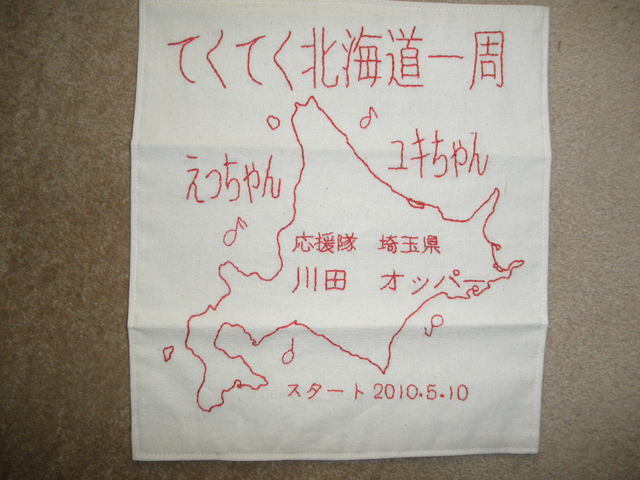 てくてく北海道一周
ユキちゃん
えっちゃん
応援隊 埼玉県
川田 オッパー
スタート 2010.5.10